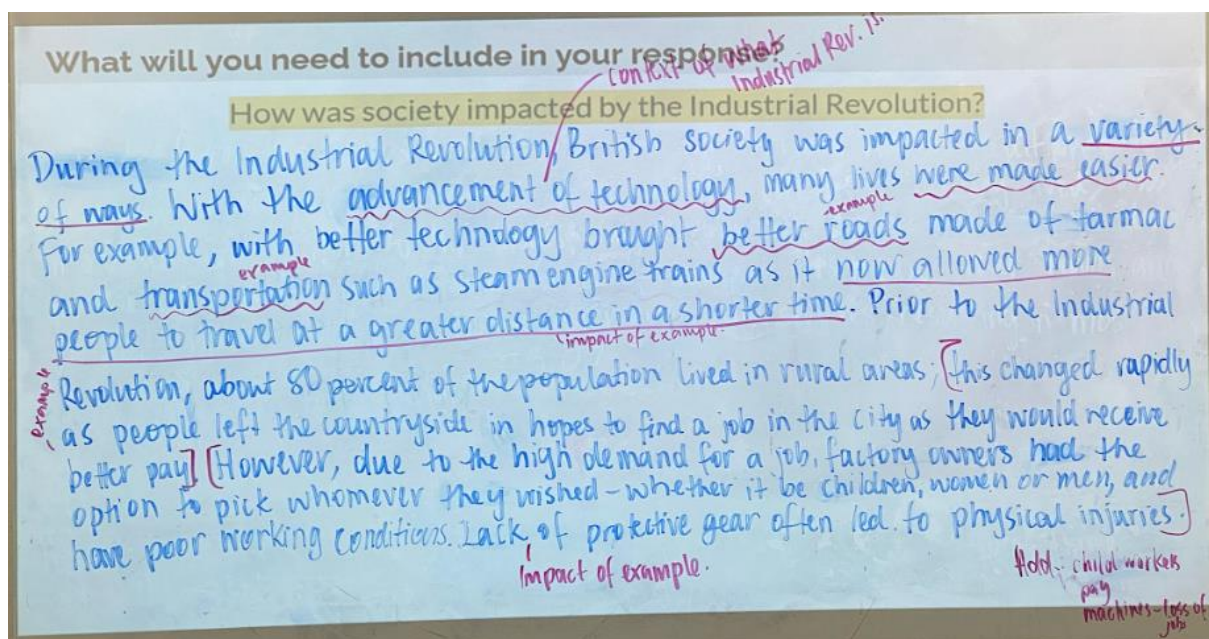 What will you need to include in your response?
context of what
Industrial Rev. is.
How was society impacted by the Industrial Revolution?
During the Industrial Revolution, British society was impacted in a variety
of ways. With the advancement of technology, many lives were made easier.
example
For example, with better technology brought better roads made of tarmac
example
and transportation such as steam engine trains as it now allowed more
people to travel at a greater distance in a shorter time. Prior to the Industrial
impact of example.
example
Revolution, about 80 percent of the population lived in rural areas; [this changed rapidly
as people left the countryside in hopes to find a job in the city as they would receive
better pay] [However, due to the high demand for a job, factory owners had the
option to pick whomever they wished - whether it be children, women or men, and
have poor working conditions. Lack of protective gear often led to physical injuries.]
Impact of example.
Add: child workers
pay
machines - loss of
jobs